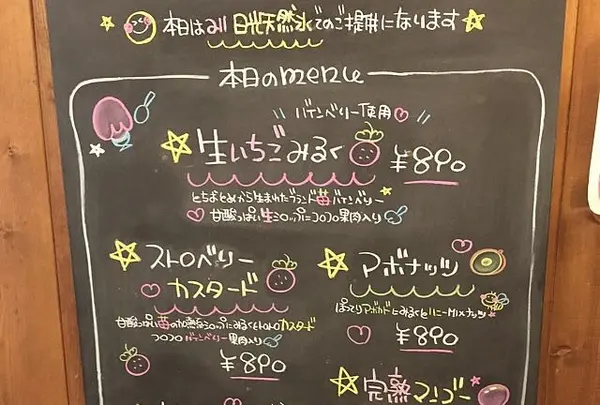 本日は 日光天然氷でのご提供になります
本日のmenu
バイオベリー使用
生いちごみるく ¥890
とちおとめから生まれたブランド苺バイオベリー
甘酸っぱい生シロップにコロコロ果肉入り
ストロベリー
カスタード
甘酸っぱい苺の加熱シロップにみるくとトロトロカスタード
コロコロバイオベリー果肉入り
¥890
アボナッツ
ぽってりアボカドにみるくとハニーMIXナッツ
¥890
完熟マンゴー